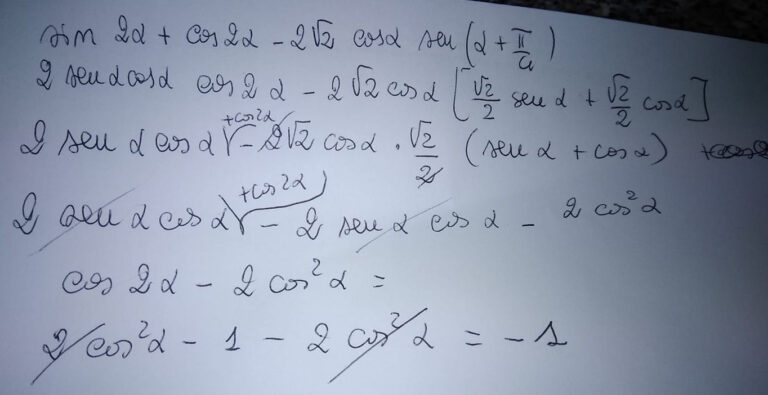 sin 2α + cos 2α - 2√2 cosα sen (α + π/4)
2 senα cosα cos 2α - 2√2 cosα [√2/2 sen α + √2/2 cosα]
2 sen α cos α +cos2α - 2√2 cosα · √2/2 (sen α + cos α)
2 sen α cos α +cos 2α - 2 sen α cos α - 2 cos²α
cos 2α - 2 cos²α =
2 cos²α - 1 - 2 cos²α = - 1